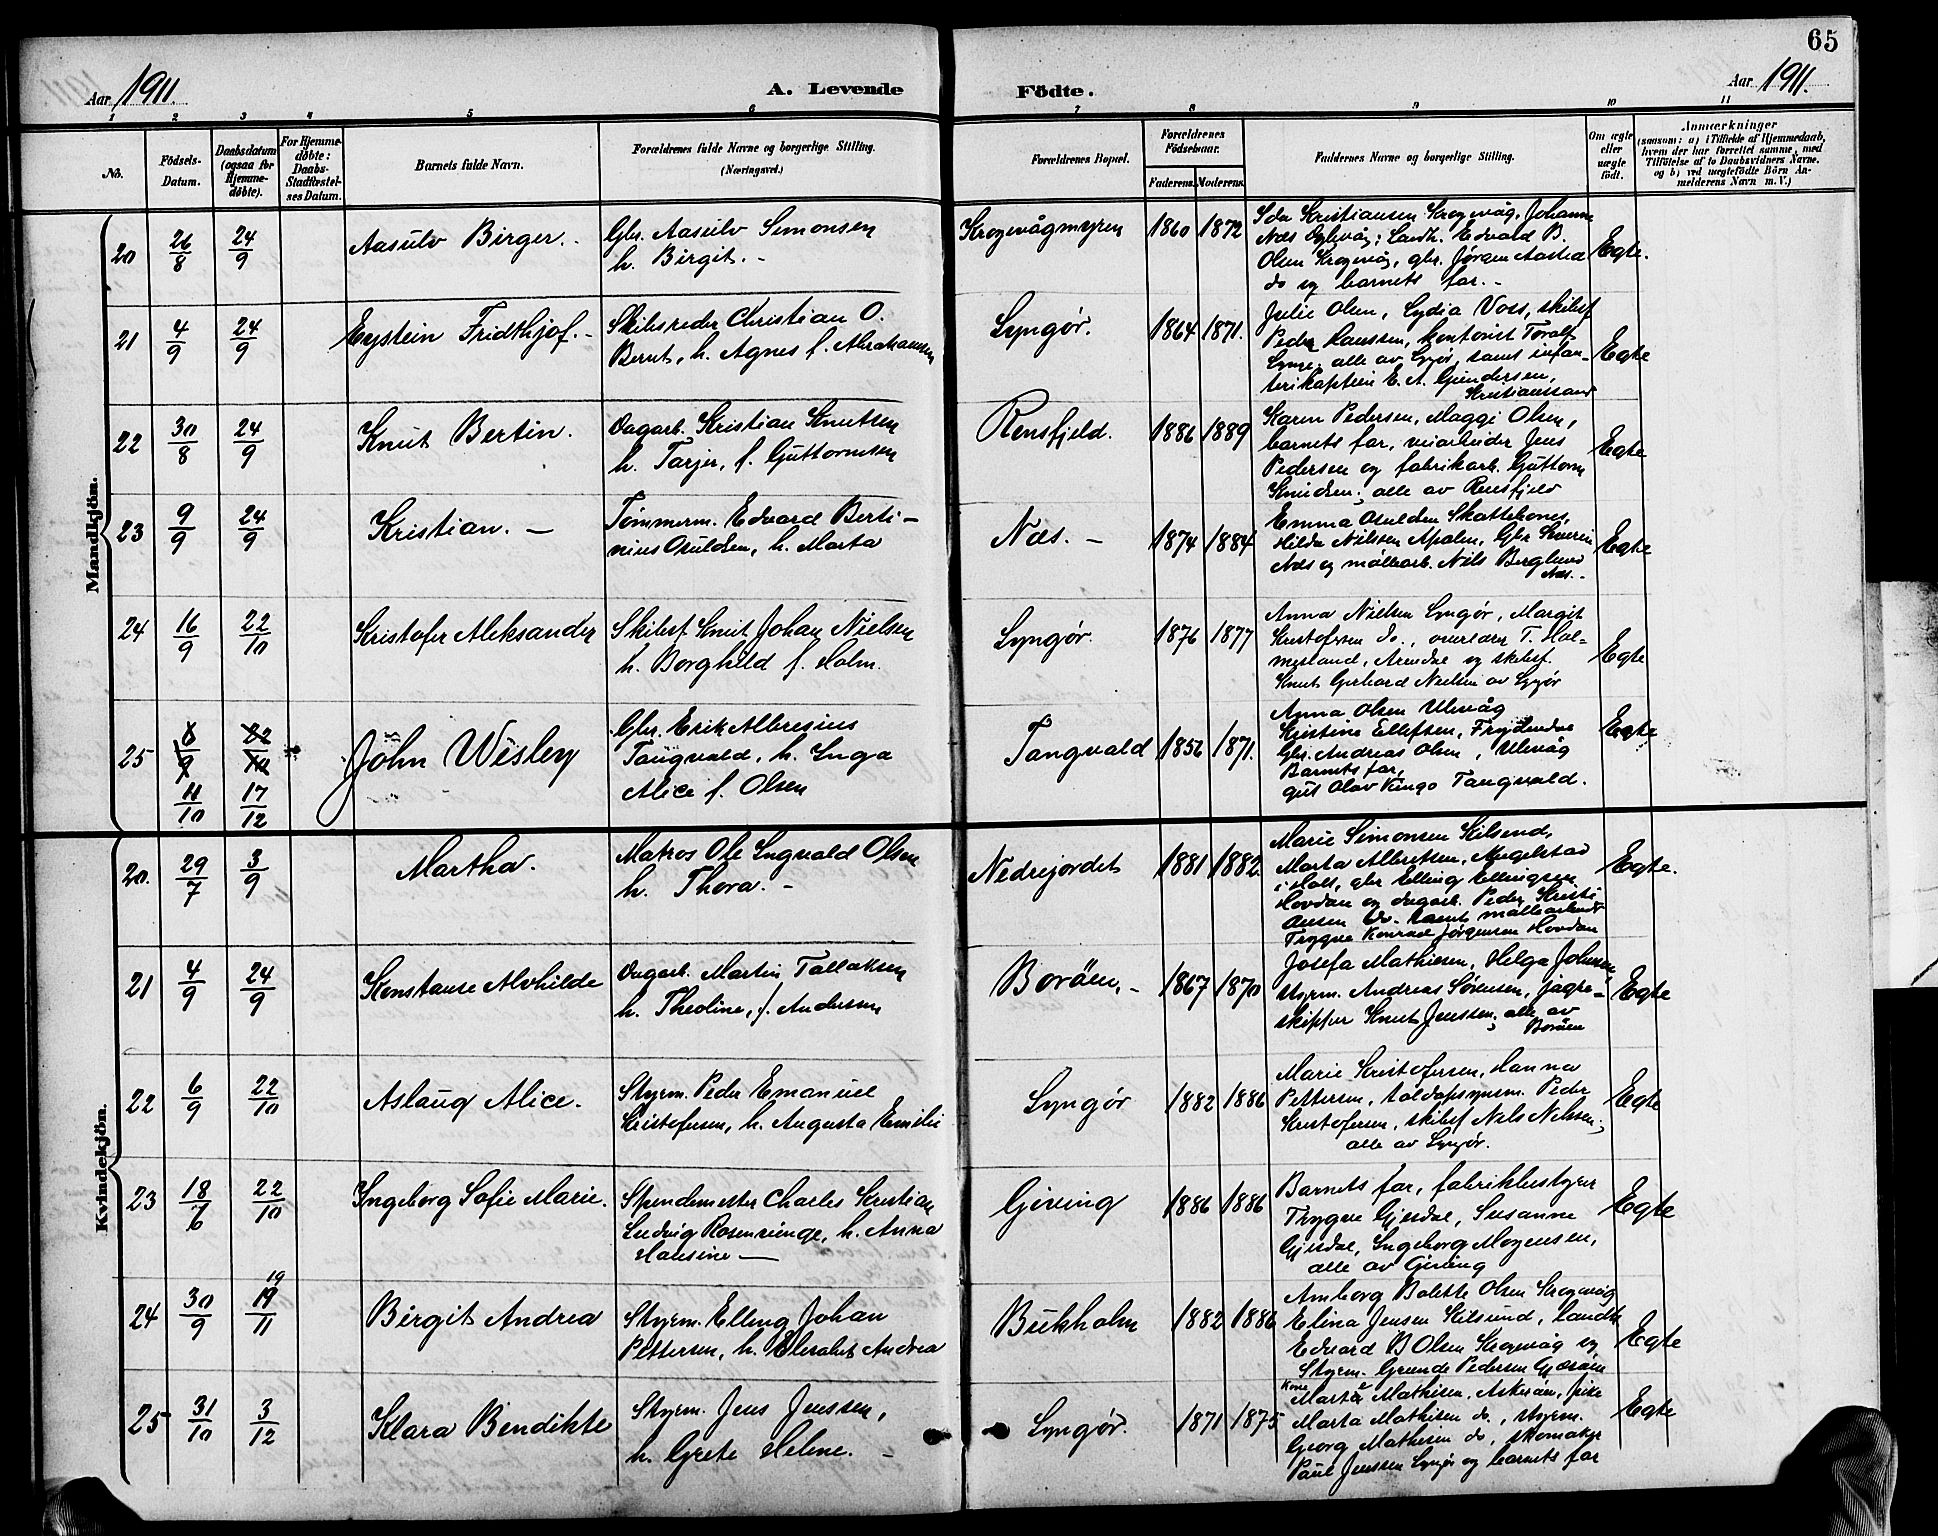 65
Aar 1911.
A. Levende
Födte.
Aar 1911.
1 2 3 4 5 6 7 8 9 10 11
No.
Födsels-
Datum.
Daabsdatum
(ogsaa for
Hjemme-
döbte).
For Hjemme-
döbte:
Daabs-
Stadfæstel-
ses Datum.
Barnets fulde Navn.
Forældrenes fulde Navne og borgerlige Stilling.
(Næringsvei.)
Forældrenes Bopæl.
Forældrenes
Födselsaar.
Faderens.
Moderens.
Faddernes Navne og borgerlige Stilling.
Om ægte
eller
uægte
födt.
Anmærkninger
(saasom: a) i Tilfælde af Hjemmedaab,
hvem der har forrettet samme, med
Tilföielse af to Daabsvidners Navne,
og b) ved uægtefödte Börn An-
melderens Navn m. V.)
Mandkjön.
20
26/8
24/9
Aasulv Birger.
Gbr. Aasulv Simonsen
h. Birgit. -
Krogevågmyren
1860
1872
Ida Kristiansen Krogevåg, Johanne
Næs ; Landh. Edvald B.
Olsen Krogevåg, gbr. Jørgen Aasted
do og barnets far. -
Egte.
21
4/9
24/9
Eystein Fridthjof. -
Skibsreder Christian O.
Bernt, h. Agnes f. Abrahamsen
Lyngør.
1864
1871.
Julie Olsen, Lydia Voss, skibsf
Peder Hanssen, kontorist Toralf
Lynge, alle av Lyngør, samt infan-
terikaptein E. A. Gundersen,
Kristianssand
Egte
22
30/8
24/9
Knut Bertin.
Dagarb. Kristian Knutsen
h. Tarjer, f. Guttormsen
Rensfjeld.
1886
1889
Karen Pedersen, Maggi Olsen,
barnets far, veiarbeider Jens
Pedersen og fabrikarb. Guttorm
Knudsen; alle av Rensfjeld
Egte
23
9/9
24/9
Kristian. -
Tømmerm. Edvard Berti-
nius Osuldsen, h. Marta
Næs. -
1874
1884
Emma Osuldsen Skattebones,
Hilda Nilsen Apalen, Gbr Severin
Næs og mølleearb. Nils Berglund
Næs. -
Egte
24
16/9
22/10
Kristofer Aleksander
Skibsf Knut Johan Nielsen
h. Borghild f. Holm.
Lyngør.
1876
1877
Anna Nielsen Lyngør, Margit
Kristofersen do., overlærer T. Hol-
mesland, Arendal og skibsf.
Knut Gerhard Nielsen av Lyngør
Egte
25
8/9
11/10
22/10
17/12
John Wesley
Gbr. Erik Albresius
Tangvald, h. Inga
Alice f. Olsen
Tangvald
1856
1871.
Anna Olsen Ulevåg
Kristine Ellefsen, Frydendal
Gbr. Andreas Olsen, Ulevåg
Barnets far,
gut Olav Kingo Tangvald.
Egte
Kvindekjön.
20.
29/7
3/9
Martha.
Matros Ole Ingvald Olsen
h. Thora. -
Nedrejordet
1881
1882.
Marie Simonsen Kilsund,
Marta Albretsen, Angelstad
i Holt, gbr Elling Ellingsen
Hovdan og dagarb. Peder Kristi-
ansen do. samt møllearbeider
Trygve Konrad Jørgensen Hovdan
Egte.
21
4/9
24/9
Konstanse Alvhilde
Dagarb. Martin Tallaksen
h. Theoline, f. Andersen
Borøen, -
1867
1870
Josefa Mathiesen, Helga Johnsen,
styrm. Andreas Sørensen, jagte-
skipper Knut Jenssen; alle av
Borøen
Egte
22
6/9
22/10
Aslaug Alice.
Styrm. Peder Emanuel
Kristofersen, h. Augusta Emilie
Lyngør
1882
1886
Marie Kristofersen, Hanna
Pettersen, toldopsynsm. Peder
Kristofersen, skibsf Nils Nelssen;
alle av Lyngør.
Egte
23
18/6
22/10
Ingeborg Sofie Marie.
Spindemester Charles Kristian
Ludvig Rosenvinge, h. Anna
Hansine -
Gjeving
1886
1886
Barnets far, fabrikbestyrer
Trygve Gjesdal, Susanne
Gjesdal, Ingeborg Mogensen,
alle av Gjeving
Egte
24
30/9
19
19/11
Birgit Andrea
Styrm. Elling Johan
Pettersen, h. Elisabet Andrea
Bukholm
1882
1886
Amborg Bolette Olsen Krogevåg
Elina Jensen Kilsund, Landh.
Edvard B Olsen Krogevåg og
Styrm. Grunde Pedersen
Egte
25
31/10
3/12
Klara Bendikte
Styrm. Jens Jenssen,
h. Grete Helene. -
Lyngør.
1871
1875
Kone
Marta Mathisen, Askerøen, pike
Marta Mathisen do., styrm.
Georg Mathisen do, skomaker
Paul Jenssen Lyngør og barnets far
Egte